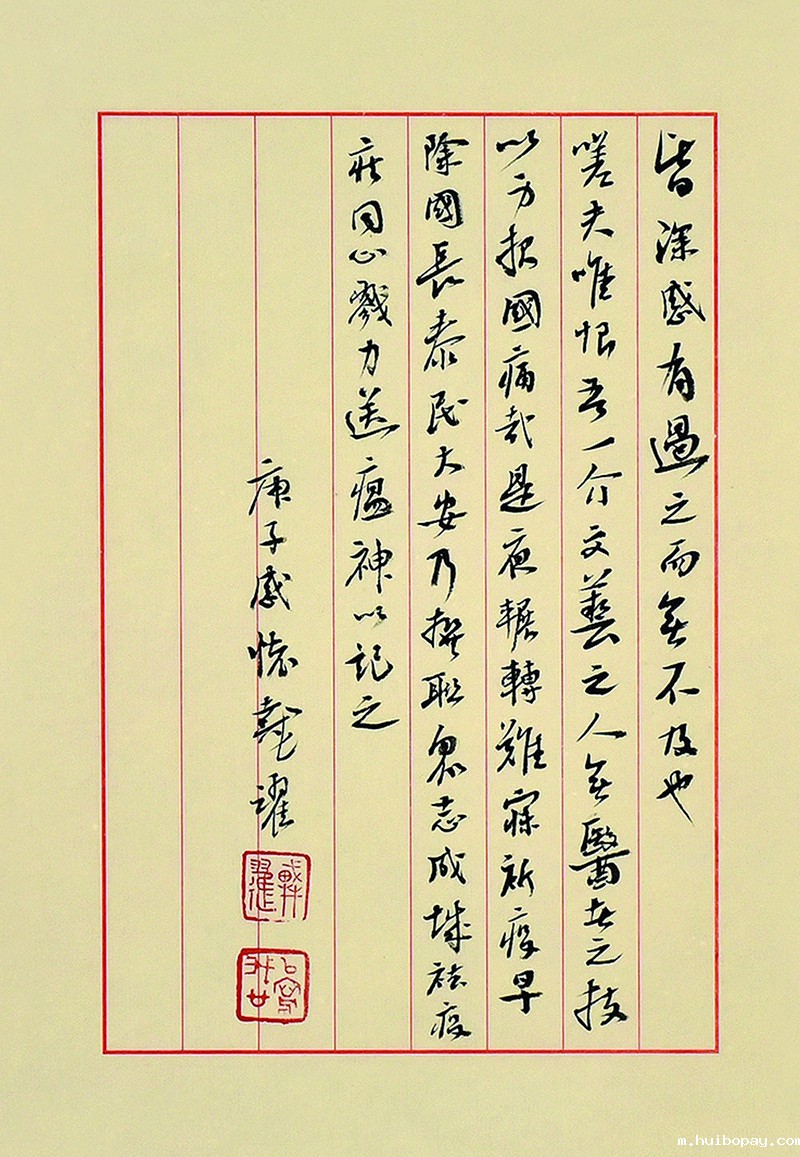 皆深感有過之而無不及也
嗟夫唯恨吾一介文藝之人無醫世之技
以方報國痛哉是夜輾轉難寐祈疫早
除國長泰民大安乃撰联眾志成城祛疫
疾同心戮力送瘟神以記之
庚子感懷戴躍
m.huibopay.com